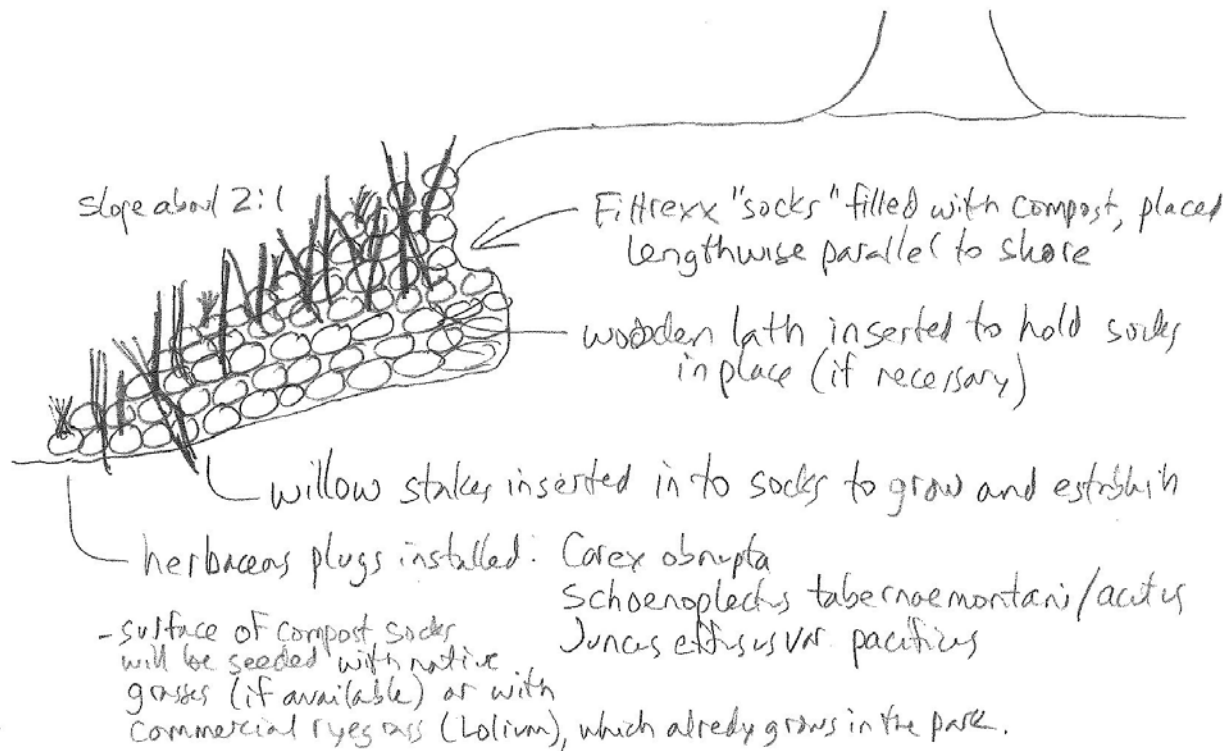 slope about 2:1
Filtrexx "socks" filled with compost, placed
lengthwise parallel to shore
wooden lath inserted to hold socks
in place (if necessary)
willow stakes inserted in to socks to grow and establish
herbaceous plugs installed: Carex obnupta
Schoenoplectus tabernaemontani/acutus
Juncus effusus var. pacificus
- surface of compost socks
will be seeded with native
grasses (if available) or with
commercial ryegrass (Lolium), which alredy grows in the park.